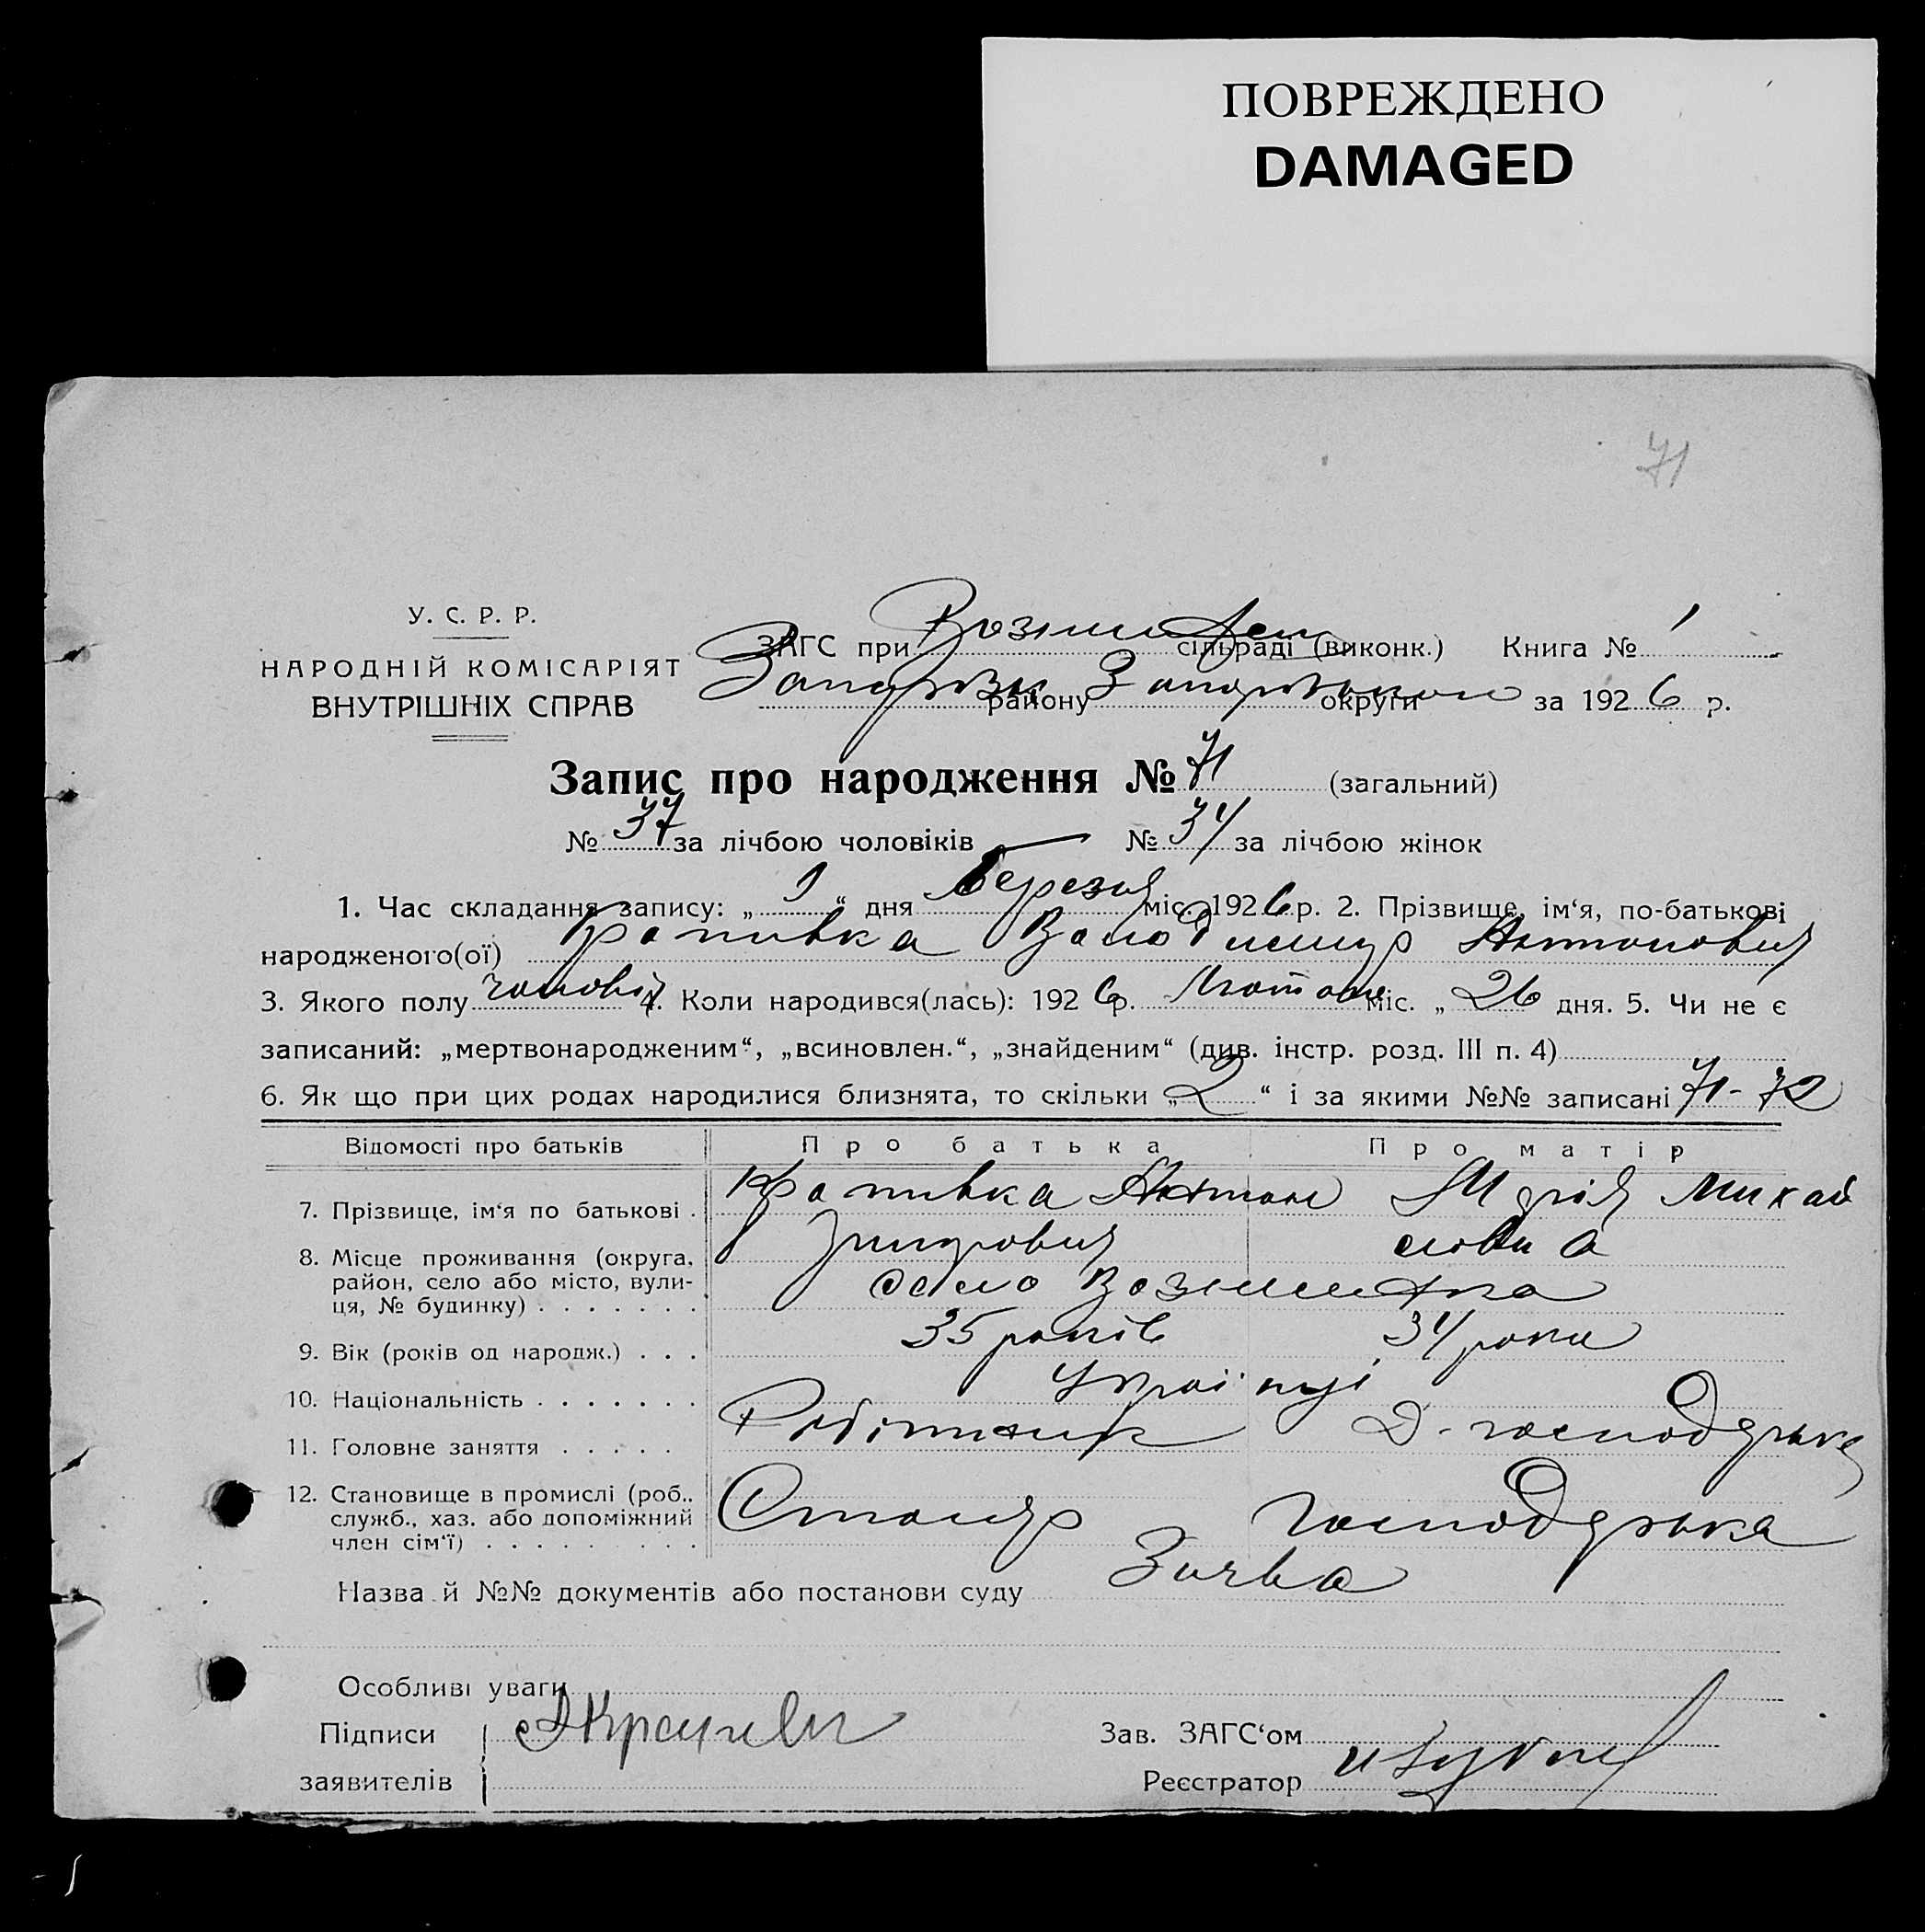 ПОВРЕЖДЕНО
DAMAGED
71
У. С. Р. Р.
НАРОДНІЙ КОМІСАРІЯТ
ВНУТРІШНІХ СПРАВ
ЗАГС при сільраді (виконк.) Книга № 1
району округи за 1926 р.
Запис про народження № 71 (загальний)
№ 37 за лічбою чоловіків — № 34 за лічбою жінок
1. Час складання запису: „ 1 “ дня березня міс. 1926 р. 2. Прізвище, ім‘я, по-батькові
народженого(ої) Крапивка Володимир Антонович
3. Якого полу чоловіч 4. Коли народився(лась): 1926 р. Лютого міс. „ 26 дня. 5. Чи не є
записаний: „мертвонародженим“, „всиновлен.“, „знайденим“ (див. інстр. розд. III п. 4)
6. Як що при цих родах народилися близнята, то скільки „ 2 “ і за якими №№ записані 71-72
Відомості про батьків Про батька Про матір
7. Прізвище, ім‘я по батькові . Крапивка Антон Марія Михай
ловна
8. Місце проживання (округа,
район, село або місто, вули-
ця, № будинку) . . . . . . . село Вознесенка
9. Вік (років од народж.) . . . 35 років 34 роки
10. Національність . . . . . . . Українці
11. Головне заняття . . . . . Робітник Д-господарька
12. Становище в промислі (роб.,
служб., хаз. або допоміжний
член сім‘ї) . . . . . . . . . Столяр Господарька
Назва й №№ документів або постанови суду Заява
Особливі уваги
Підписи
заявителів
Зав. ЗАГС‘ом
Реєстратор